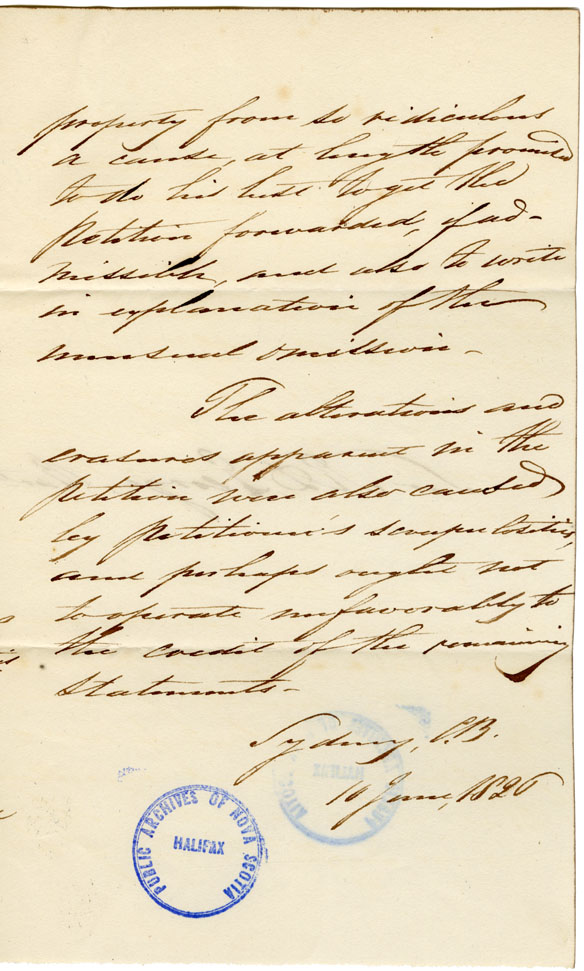 property from so ridiculous
a cause, at length promised
to do his best to get the
petition forwarded, if ad-
missible, and also to write
in explanation of the
unusual omission –
The alterations and
erasures apparent in the
petition were also caused
by petitioner's scrupulosities,
and perhaps ought not
to operate unfavorably to
the credit of the remaining
statements –
Sydney, C.B.
10 June, 1826
PUBLIC ARCHIVES OF NOVA SCOTIA
HALIFAX
HALIFAX